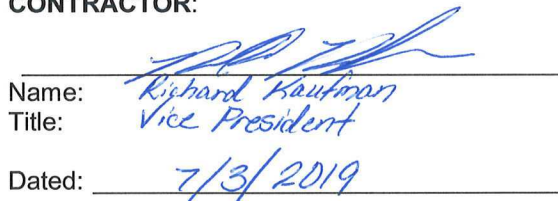 CONTRACTOR:
Name: Richard Kaufman
Title: Vice President
Dated: 7/3/2019